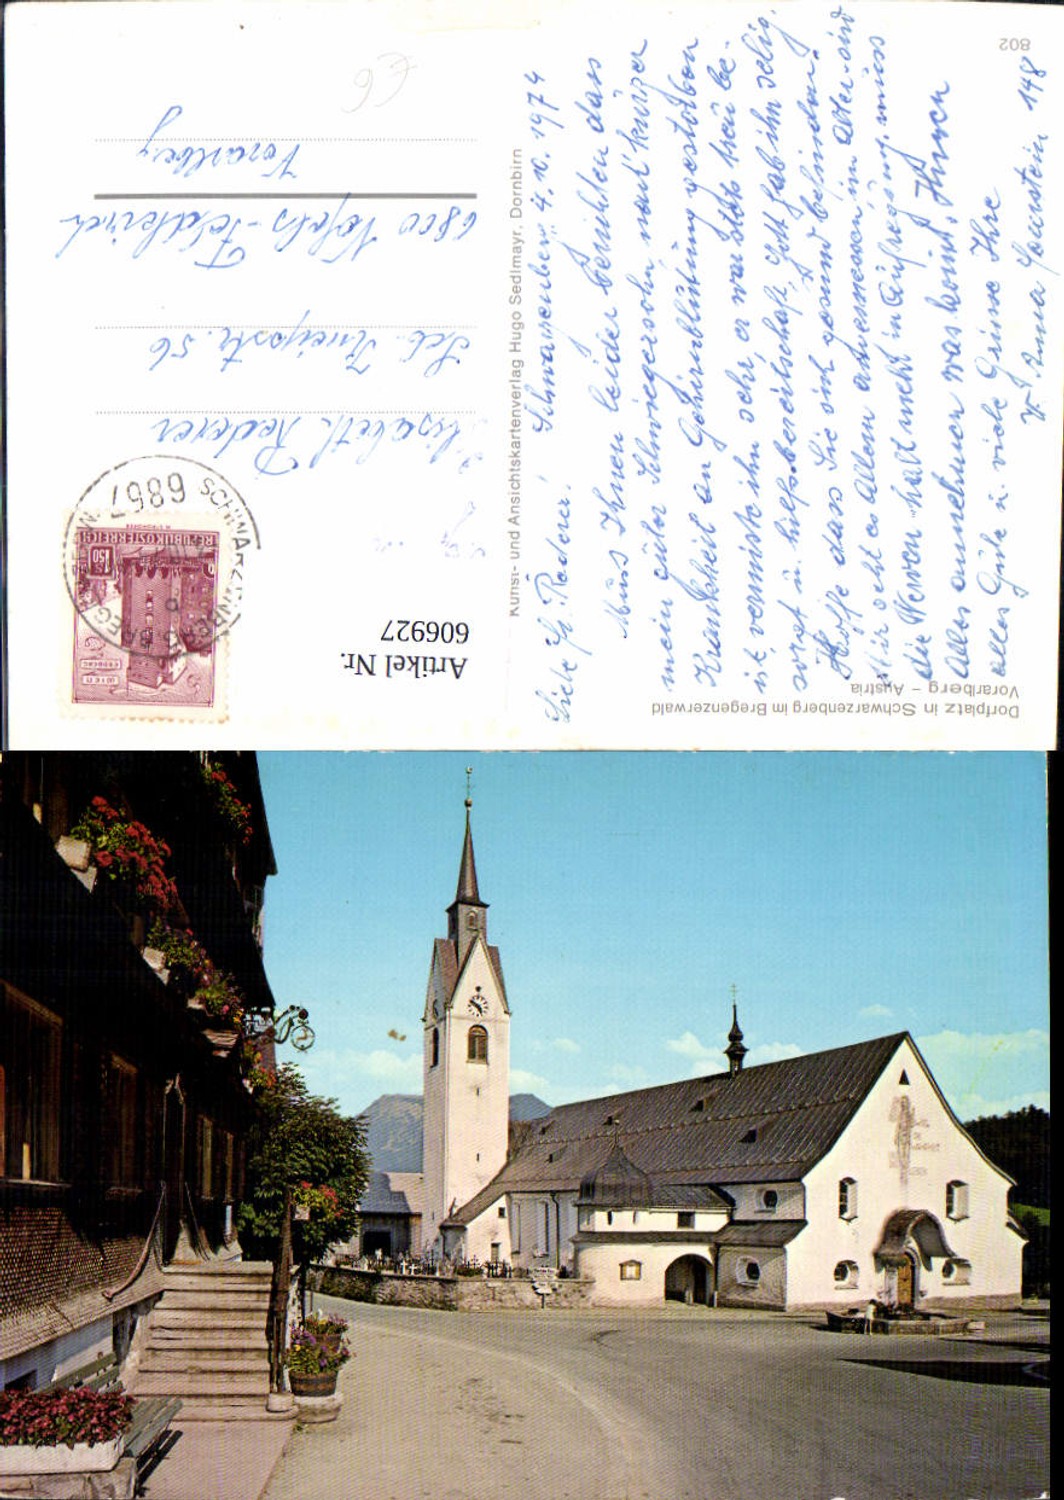 802
Dorfplatz in Schwarzenberg im Bregenzerwald
Vorarlberg – Austria
Kunst- und Ansichtskartenverlag Hugo Sedlmayr, Dornbirn
Schwarzenberg 4.10.1974
Liebe Fr. Rederer!
Muss Ihnen leider berichten dass
mein guter Schwiegersohn, nach kurzer
Krankheit an Gehirnblutung gestorben
ist, vermisste ihn sehr, er war stets treu be-
sorgt u. hilfsbereitschaft, Gott hab ihn selig.
Hoffe dass Sie sich gesund befinden.
Mir geht es Allem angemessen, im Alter sind
die Nerven halt nicht in Aufregung, muss
Alles annehmen was komt, Ihnen
alles Gute u. viele Grüsse Ihre
Anna 148
Elisabeth Rederer
Seb. Kneippstr. 56
6800 Feldkirch
Vorarlberg
€6
Artikel Nr.
606927
6867 SCHWARZENBERG
REPUBLIK ÖSTERREICH
1.50
WIEN
ERDBERG